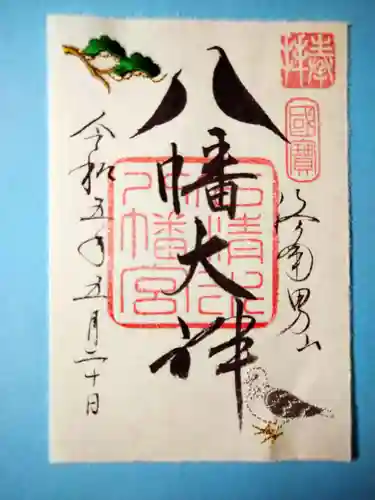 奉拝
國寶
洛南男山
八幡大神
石清水八幡宮
令和五年五月二十日